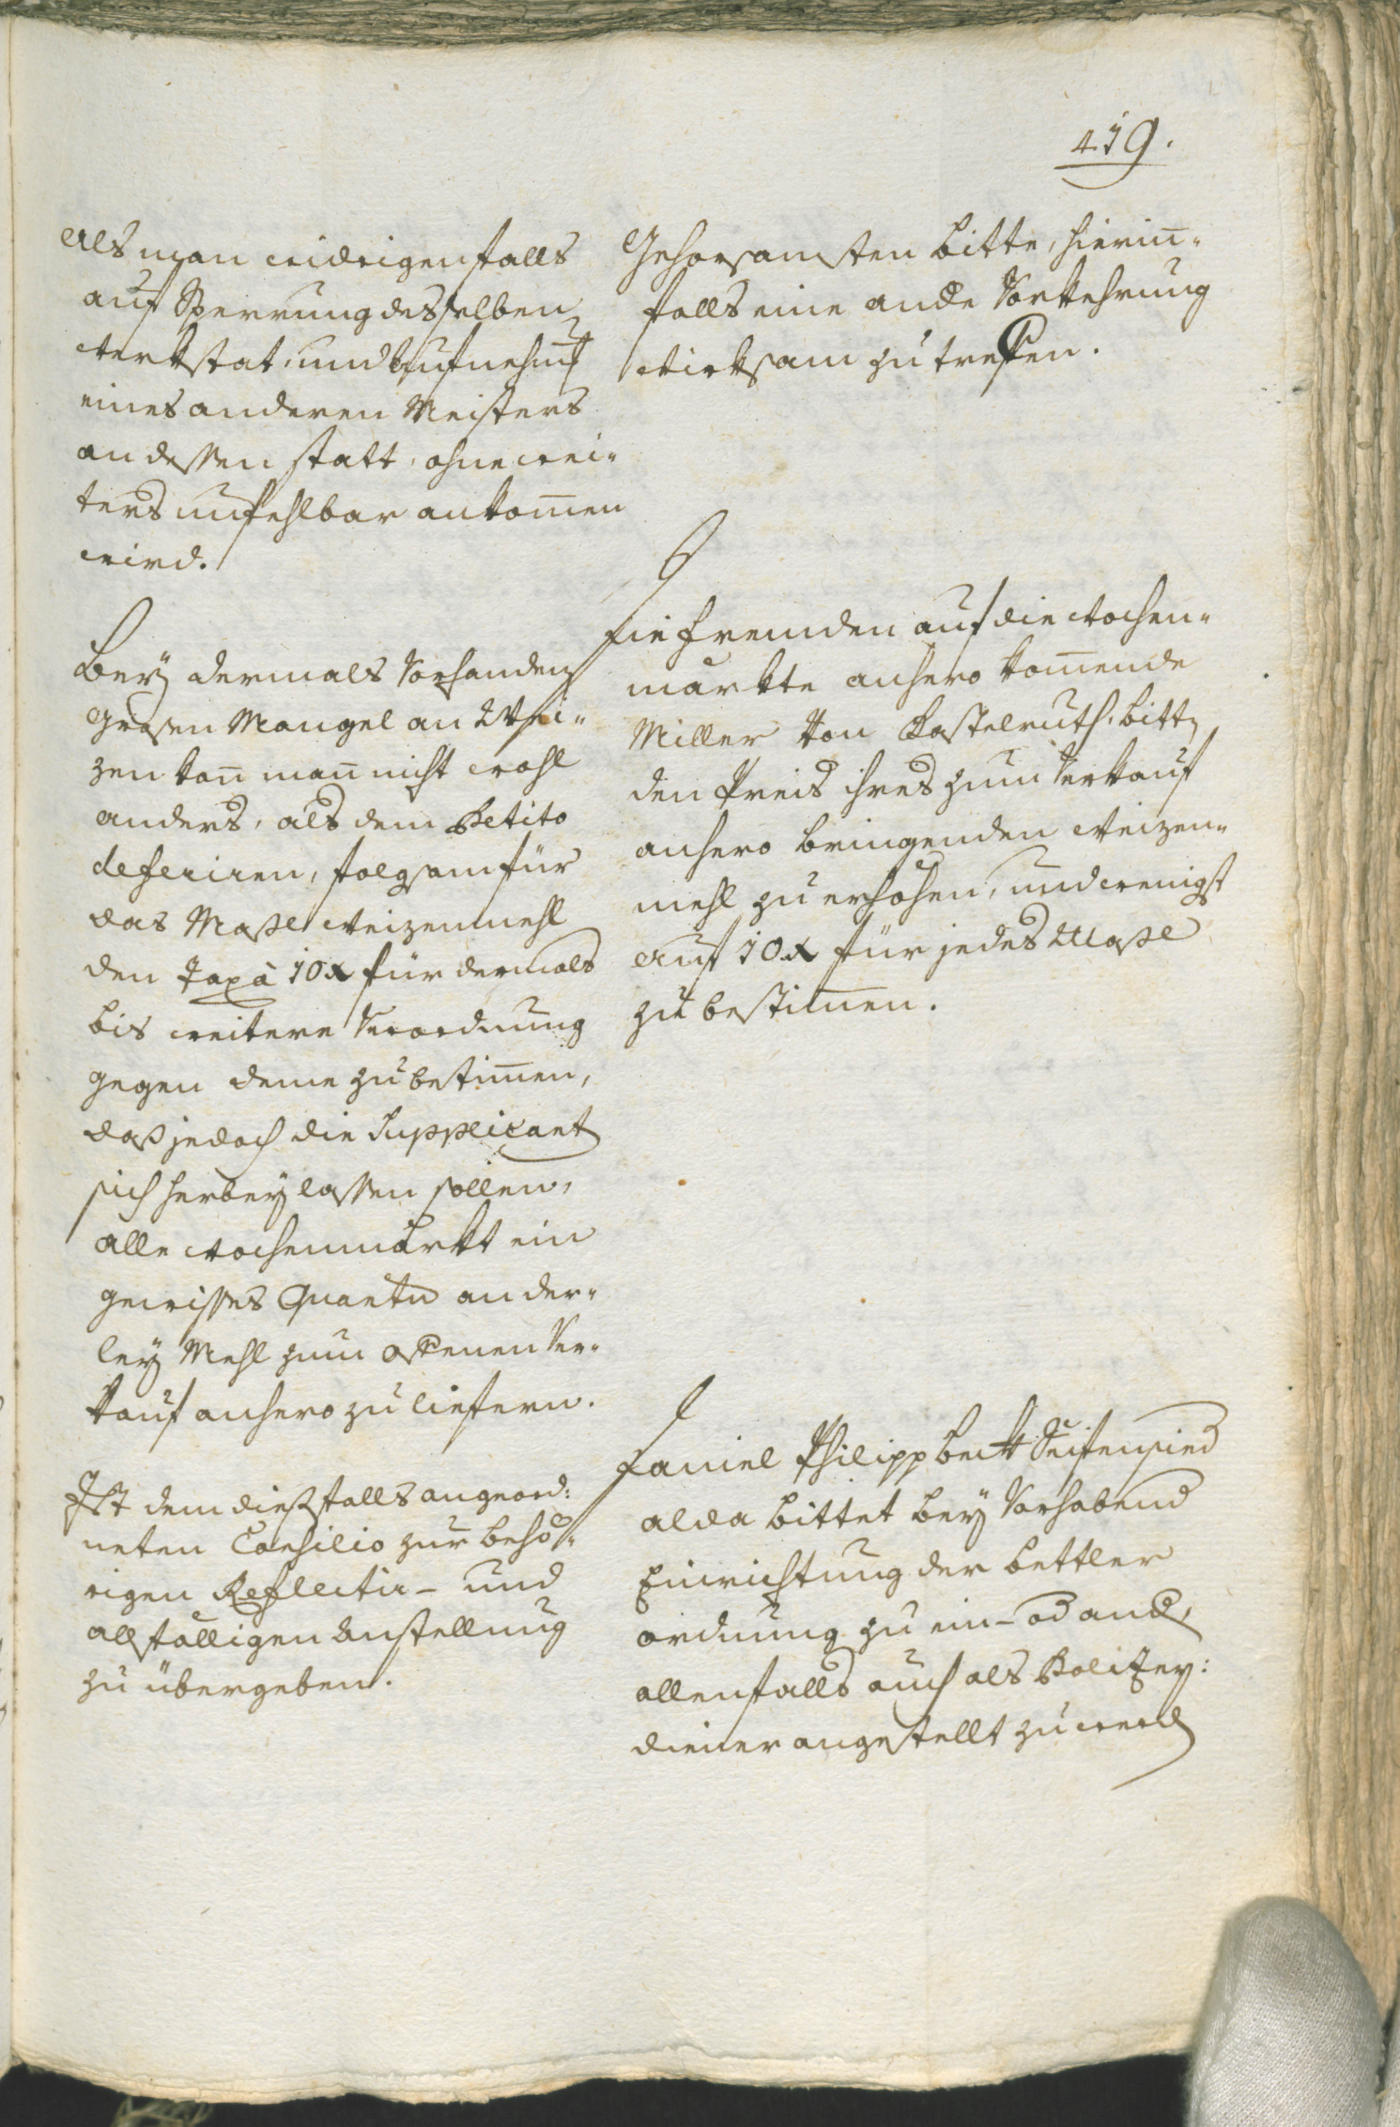 419.
als man widrigenfalls
auf Sperrung desselben
werkstat, und aufnehmung
eines anderen Meisters
an dessen statt, ohne wei-
ters unfehlbar ankom̄en
wird.
Bey dermals vorhanden
grosen Mangel an Wei-
zen kan̄ man̄ nicht wohl
anders, als dem Petito
deferiren, folgsam für
das Massl weizenmehl
den Tax à 10 x für dermals
bis weitere Verordnung
gegen deme zu bestim̄en,
daß jedoch die Supplicanten
sich herbeylassen sollen,
alle wochenmärkt ein
gewisses Quantu an der-
ley Mehl zum offenen Ver-
kauf anhero zu liefern.
Ist dem dießfalls angeord:
neten Consilio zur behö-
rigen Reflectir- und
allfälligen Anstellung
zu übergeben.
Gehorsamsten bitte, hierin̄-
falls eine ande Vorkehrung
wirksam zu treffen.
Die fremden auf die wochen-
märkte anhero kom̄ende
Miller von Kastelruth, bitten
den Preis ihres zum Verkauf
anhero bringenden weizen-
mehl zu erhöhen, und wenigst
auf 10 x für jedes Massl
zu bestim̄en.
Daniel Philipp beckh Seifensied
alda bittet bey vorhabend
Einrichtung der bettler
ordnung zu ein- od and
allenfalls auch als Polizey:
diener angestellt zu werden